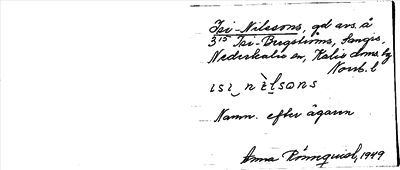 Isi-Nilssons, gd avs. å
3¹⁵ Isi-Bergströms, Sangis,
Nederkalix sn, Kalix doms.
Norrb. l
ısı‿nèlsons
Namn. efter ägaren
Anna Rönnquist, 1949